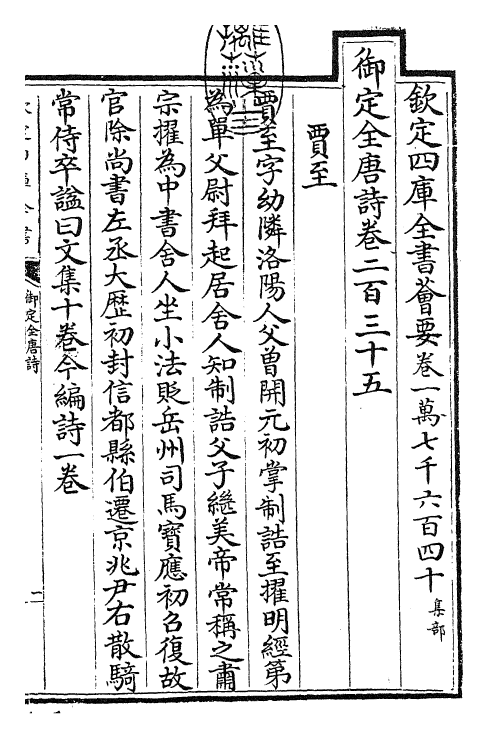 欽定四庫全書薈要卷一萬七千六百四十 集部
御定全唐詩卷二百三十五
賈至
賈至字幼隣洛陽人父曾開元初掌制誥至擢明經第
為單父尉拜起居舍人知制誥父子繼美帝常稱之肅
宗擢為中書舍人坐小法貶岳州司馬寶應初召復故
官除尚書左丞大歴初封信都縣伯遷京兆尹右散騎
常侍卒諡曰文集十卷今編詩一卷
御定全唐詩